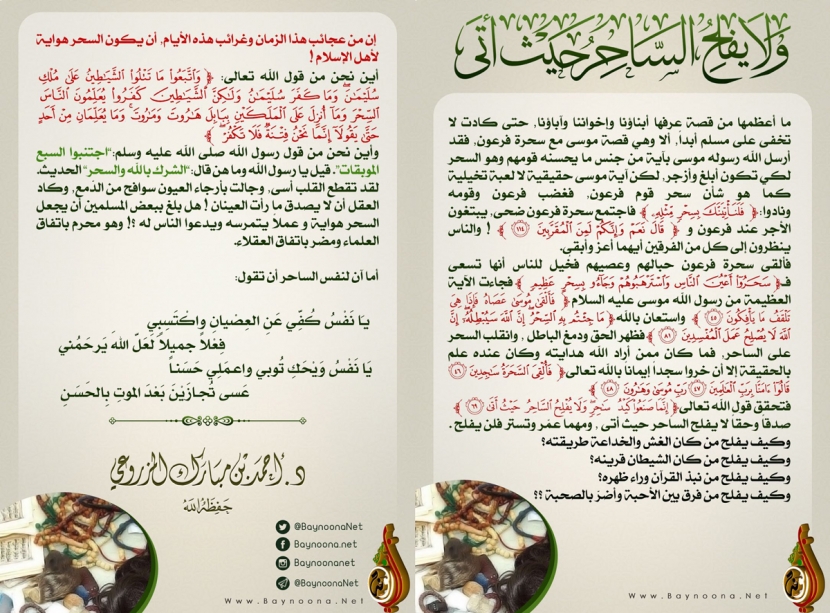 وَلَا يُفْلِحُ السَّاحِرُ حَيْثُ أَتَى
ما أعظمها من قصة عرفها أبناؤنا وإخواننا وآباؤنا، حتى كادت لا
تخفى على مسلم أبداً، ألا وهي قصة موسى مع سحرة فرعون، فقد
أرسل الله رسوله موسى بآية من جنس ما يحسنه قومهم وهو السحر
لكي تكون أبلغ وأزجر، لكن آية موسى حقيقية لا لعبة تخيلية
كما هو شأن سحر قوم فرعون، فغضب فرعون وقومه
ونادوا:﴿ فَلَنَأْتِيَنَّكَ بِسِحْرٍ مِّثْلِهِ ﴾ فاجتمع سحرة فرعون ضحى، يبتغون
الأجر عند فرعون و ﴿ قَالَ نَعَمْ وَإِنَّكُمْ لَمِنَ الْمُقَرَّبِينَ ١١٤ ﴾ ! والناس
ينظرون إلى كل من الفرقين أيهما أعز وأبقى.
فألقى سحرة فرعون حبالهم وعصيهم فخيل للناس أنها تسعى
ف﴿ سَحَرُوا أَعْيُنَ النَّاسِ وَاسْتَرْهَبُوهُمْ وَجَاءُو بِسِحْرٍ عَظِيمٍ ﴾ فجاءت الآية
العظيمة من رسول الله موسى عليه السلام ﴿ فَأَلْقَى مُوسَى عَصَاهُ فَإِذَا هِيَ
تَلْقَفُ مَا يَأْفِكُونَ ٤٥ ﴾ واستعان بالله ﴿ مَا جِئْتُم بِهِ السِّحْرُ إِنَّ اللَّهَ سَيُبْطِلُهُ إِنَّ
اللَّهَ لَا يُصْلِحُ عَمَلَ الْمُفْسِدِينَ ٨١ ﴾ فظهر الحق ودمغ الباطل ، وانقلب السحر
على الساحر، فما كان ممن أراد الله هدايته وكان عنده علم
بالحقيقة إلا أن خروا سجداً إيماناً بالله تعالى﴿ فَأُلْقِيَ السَّحَرَةُ سَاجِدِينَ ٤٦
قَالُوا آمَنَّا بِرَبِّ الْعَالَمِينَ ٤٧ رَبِّ مُوسَى وَهَارُونَ ٤٨ ﴾
فتحقق قول الله تعالى ﴿ إِنَّمَا صَنَعُوا كَيْدُ سَاحِرٍ وَلَا يُفْلِحُ السَّاحِرُ حَيْثُ أَتَى ٦٩ ﴾
صدقاً وحقاً لا يفلح الساحر حيث أتى ، ومهما عمَر وتستر فلن يفلح .
وكيف يفلح من كان الغش والخداعة طريقته؟
وكيف يفلح من كان الشيطان قرينه؟
وكيف يفلح من نبذ القرآن وراء ظهره؟
وكيف يفلح من فرق بين الأحبة وأضرَ بالصحبة ؟؟
Www.Baynoona.Net
إن من عجائب هذا الزمان وغرائب هذه الأيام، أن يكون السحر هواية
لأهل الإسلام !
أين نحن من قول الله تعالى: ﴿ وَاتَّبَعُوا مَا تَتْلُوا الشَّيَاطِينُ عَلَى مُلْكِ
سُلَيْمَانَ وَمَا كَفَرَ سُلَيْمَانُ وَلَكِنَّ الشَّيَاطِينَ كَفَرُوا يُعَلِّمُونَ النَّاسَ
السِّحْرَ وَمَا أُنزِلَ عَلَى الْمَلَكَيْنِ بِبَابِلَ هَارُوتَ وَمَارُوتَ وَمَا يُعَلِّمَانِ مِنْ أَحَدٍ
حَتَّى يَقُولَا إِنَّمَا نَحْنُ فِتْنَةٌ فَلَا تَكْفُرْ ﴾
وأين نحن من قول رسول الله صلى الله عليه وسلم:"اجتنبوا السبع
الموبقات". قيل يا رسول الله وما هن قال:"الشرك بالله والسحر" الحديث.
لقد تقطع القلب أسى، وجالت بأرجاء العيون سوافح من الدَمع، وكاد
العقل أن لا يصدق ما رأت العينان ! هل بلغ ببعض المسلمين أن يجعل
السحر هواية و عملاً يتمرسه ويدعوا الناس له ؟! وهو محرم باتفاق
العلماء ومضر باتفاق العقلاء.
أما آن لنفس الساحر أن تقول:
يَا نَفْسُ كُفِّي عَنِ العِصْيَانِ وَاكْتَسِبِي
فِعْلاً جَمِيلاً لَعَلَّ اللهَ يَرحَمُني
يَا نَفْسُ وَيْحَكِ تُوبي وَاعمَلِي حَسَناً
عَسى تُجازَيْنَ بَعْدَ المَوتِ بِالحَسَنِ
د. أحمد بن مبارك المزروعي
حَفِظَهُ اللهُ
@BaynoonaNet
Baynoona.net
Baynoonanet
@BaynoonaNet
Www.Baynoona.Net